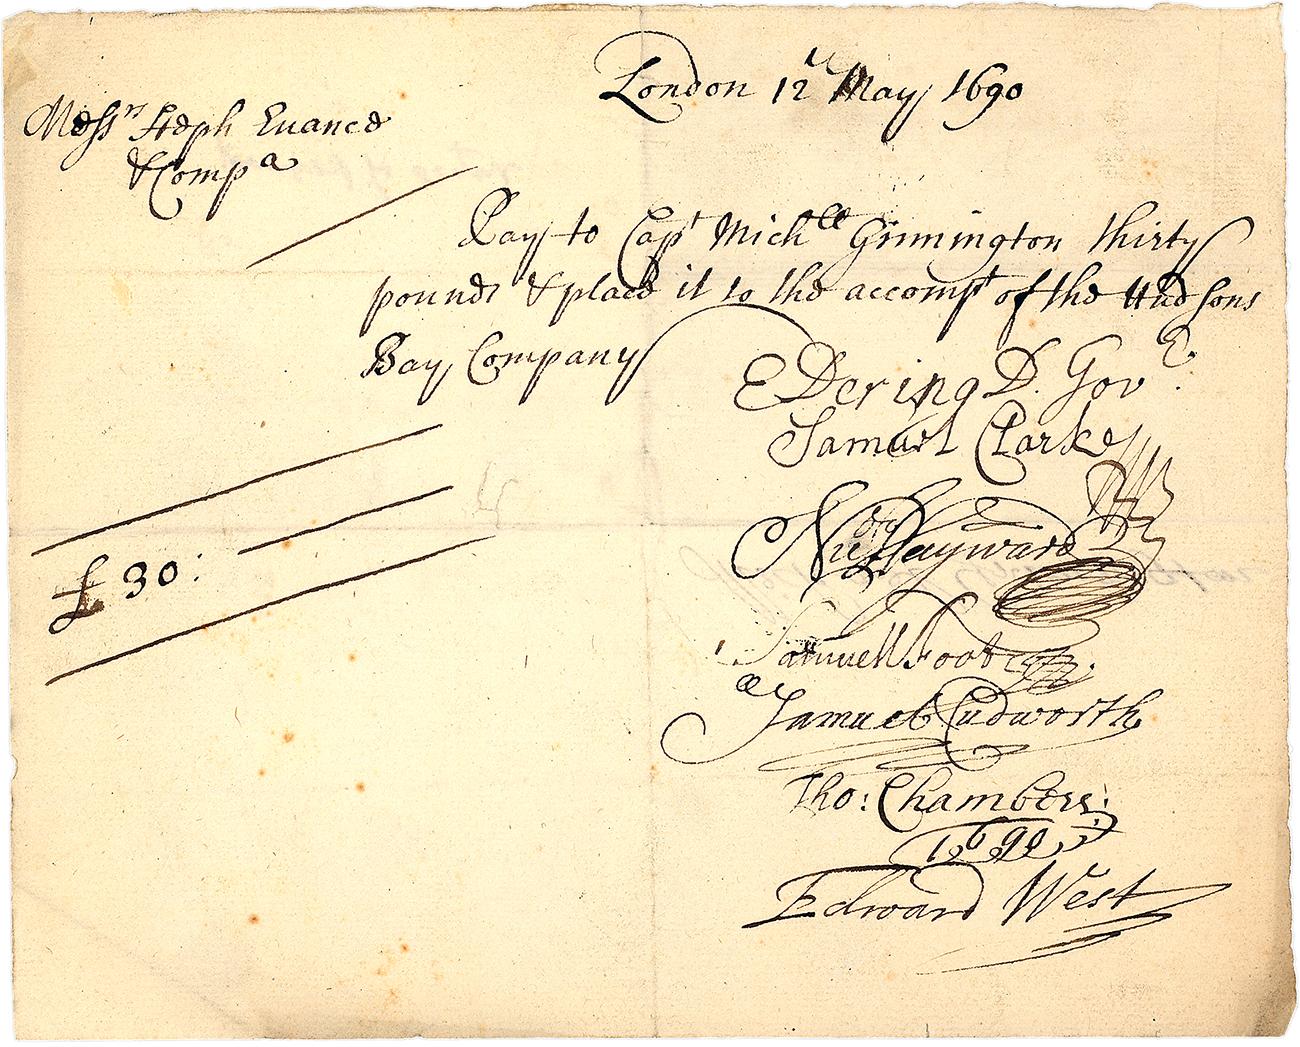 London 12 May 1690
Mess.rs Steph Evance
& Comp.a
Pay to Cap.t Mich.ll Grinnington thirty
pounds & place it to the accompt of the Hudsons
Bay Company
£30:
E Dering D. Gov.r
Samuel Clarke
Hayward
Samuell Foot
Samuel Cudworth
Tho: Chambers:
1690
Edward West